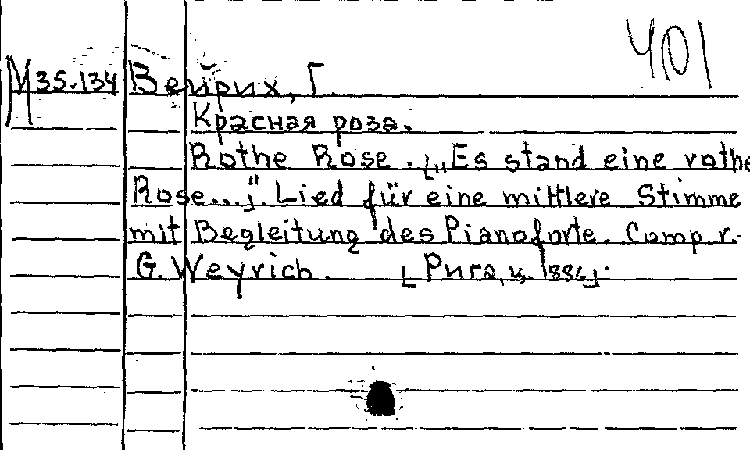 401
М 35.134 Вейрих, Г.
Красная роза.
Rothe Rose. [„Es stand eine rothe
Rose...“]. Lied für eine mittlere Stimme
mit Begleitung des Pianoforte. Comp v.
G. Weyrich. [Рига, ц. 1886].